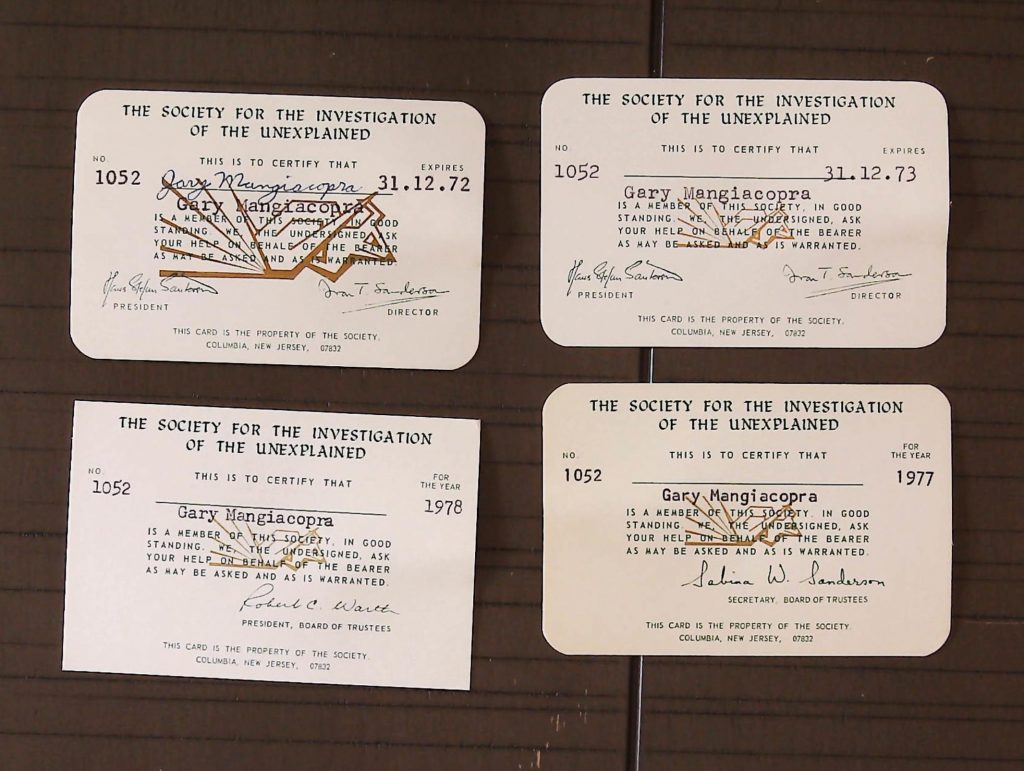 THE SOCIETY FOR THE INVESTIGATION
OF THE UNEXPLAINED
NO.
THIS IS TO CERTIFY THAT
EXPIRES
1052
Gary Mangiacopra
31.12.72
Gary Mangiacopra
IS A MEMBER OF THIS SOCIETY, IN GOOD
STANDING. WE, THE UNDERSIGNED, ASK
YOUR HELP ON BEHALF OF THE BEARER
AS MAY BE ASKED AND AS IS WARRANTED.
Ivan T. Sanderson
PRESIDENT
DIRECTOR
THIS CARD IS THE PROPERTY OF THE SOCIETY.
COLUMBIA, NEW JERSEY, 07832
THE SOCIETY FOR THE INVESTIGATION
OF THE UNEXPLAINED
NO.
THIS IS TO CERTIFY THAT
EXPIRES
1052
31.12.73
Gary Mangiacopra
IS A MEMBER OF THIS SOCIETY, IN GOOD
STANDING. WE, THE UNDERSIGNED, ASK
YOUR HELP ON BEHALF OF THE BEARER
AS MAY BE ASKED AND AS IS WARRANTED.
Ivan T. Sanderson
PRESIDENT
DIRECTOR
THIS CARD IS THE PROPERTY OF THE SOCIETY.
COLUMBIA, NEW JERSEY, 07832
THE SOCIETY FOR THE INVESTIGATION
OF THE UNEXPLAINED
NO.
THIS IS TO CERTIFY THAT
FOR
THE YEAR
1052
1978
Gary Mangiacopra
IS A MEMBER OF THIS SOCIETY, IN GOOD
STANDING. WE, THE UNDERSIGNED, ASK
YOUR HELP ON BEHALF OF THE BEARER
AS MAY BE ASKED AND AS IS WARRANTED.
Robert C. Warth
PRESIDENT, BOARD OF TRUSTEES
THIS CARD IS THE PROPERTY OF THE SOCIETY.
COLUMBIA, NEW JERSEY, 07832
THE SOCIETY FOR THE INVESTIGATION
OF THE UNEXPLAINED
NO.
THIS IS TO CERTIFY THAT
FOR
THE YEAR
1052
1977
Gary Mangiacopra
IS A MEMBER OF THIS SOCIETY, IN GOOD
STANDING. WE, THE UNDERSIGNED, ASK
YOUR HELP ON BEHALF OF THE BEARER
AS MAY BE ASKED AND AS IS WARRANTED.
Sabina W. Sanderson
SECRETARY, BOARD OF TRUSTEES
THIS CARD IS THE PROPERTY OF THE SOCIETY.
COLUMBIA, NEW JERSEY, 07832